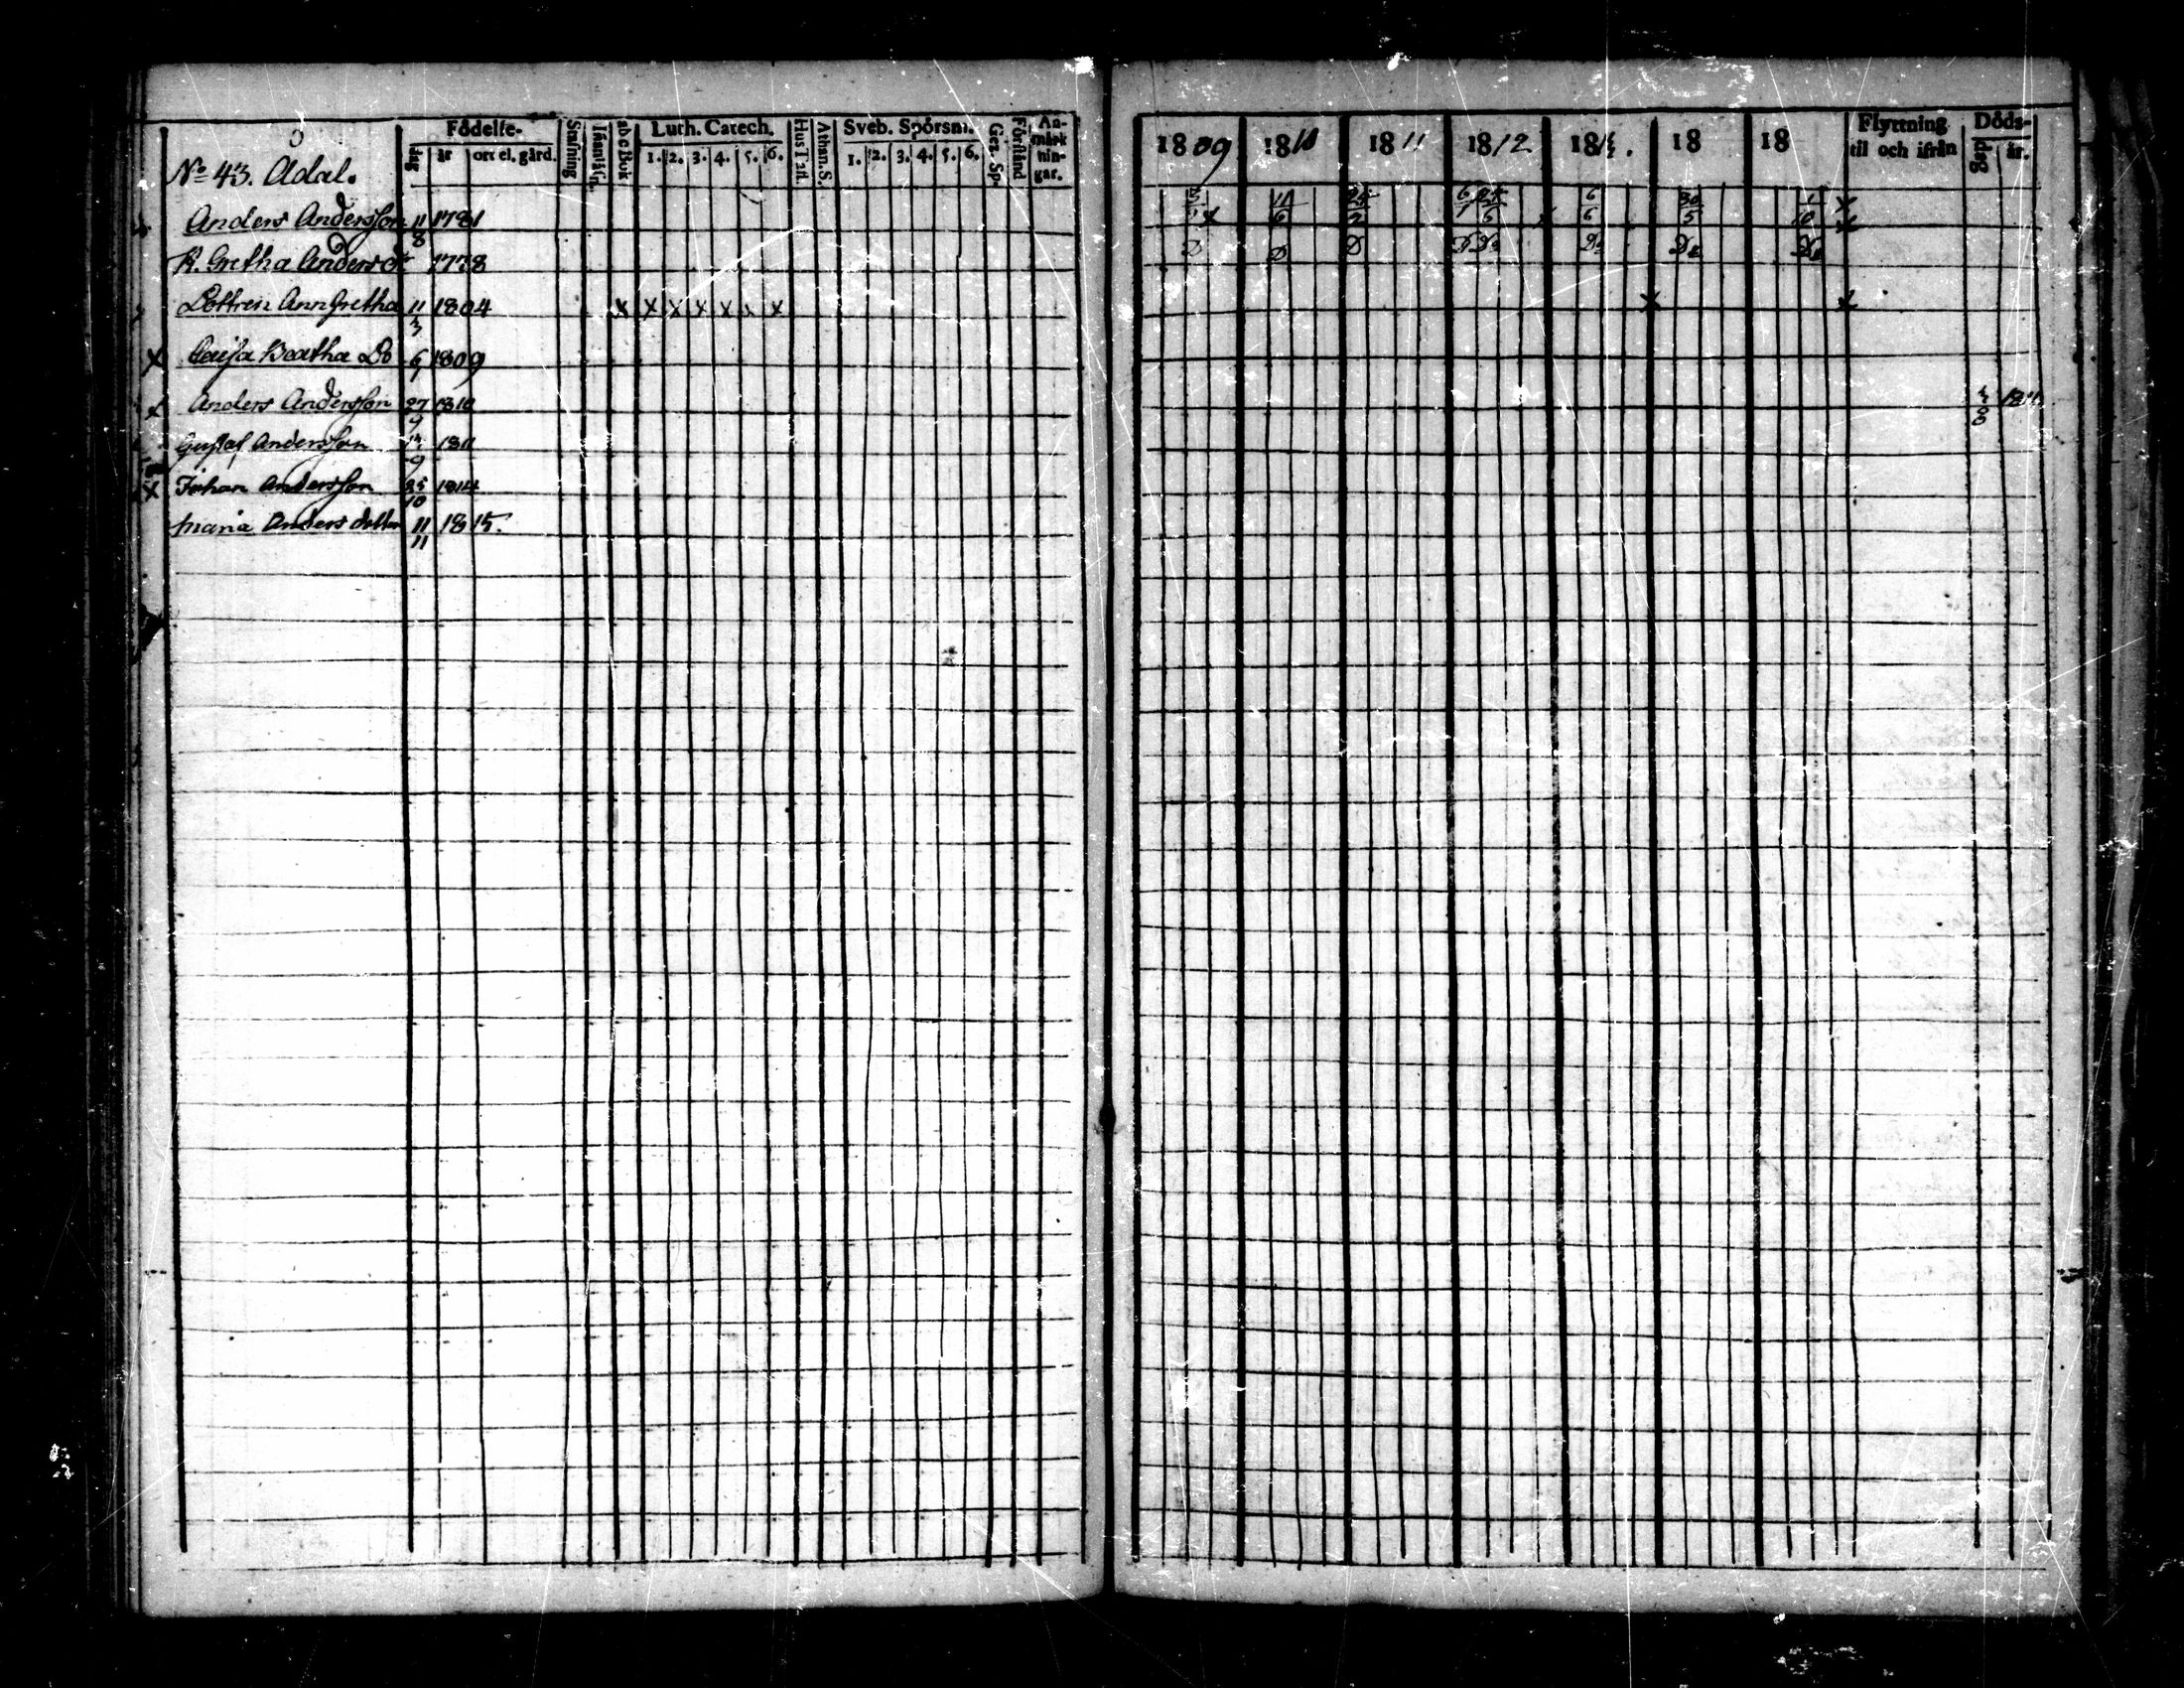 Födelse-
dag år ort el. gård. Stafning Innanläsn. abc Bok Luth. Catech. 1. 2. 3. 4. 5. 6. Hus Tafl. Athan. S. Sveb. Spörsm. 1. 2. 3. 4. 5. 6. Gez. Sp. Förstånd An-märk nin-gar.
No 43. Adal.
Anders Andersson 11/8 1781
H. Gretha Andersdr 1778
Dottren Ann Gretha 11/3 1804 x x x x x x x
x Caisa Beatha Do 6/1 1809
x Anders Andersson 27/9 1810
Gustaf Andersson 1811
x Johan Andersson 25/10 1814
Maria Andersdotter 11/11 1815.
1809 1810 1811 1812 18 18 18 Flyttning til och ifrån Döds- dag år.
11/6 6/1 24/5 x 6/6 30/5 1/10 x
D D D D Do Do Do Do
x x
3/8 1811